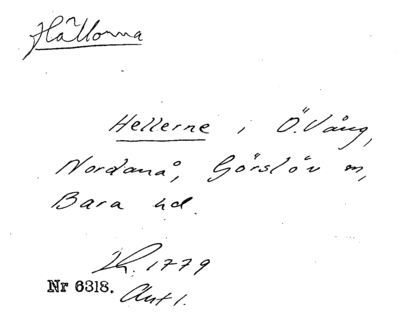 Hällorna
Hellerne i Ö. Vång,
Nordanå, Görslöv sn,
Bara hd.
Lk. 1779
Nr 6318. Akt 1.